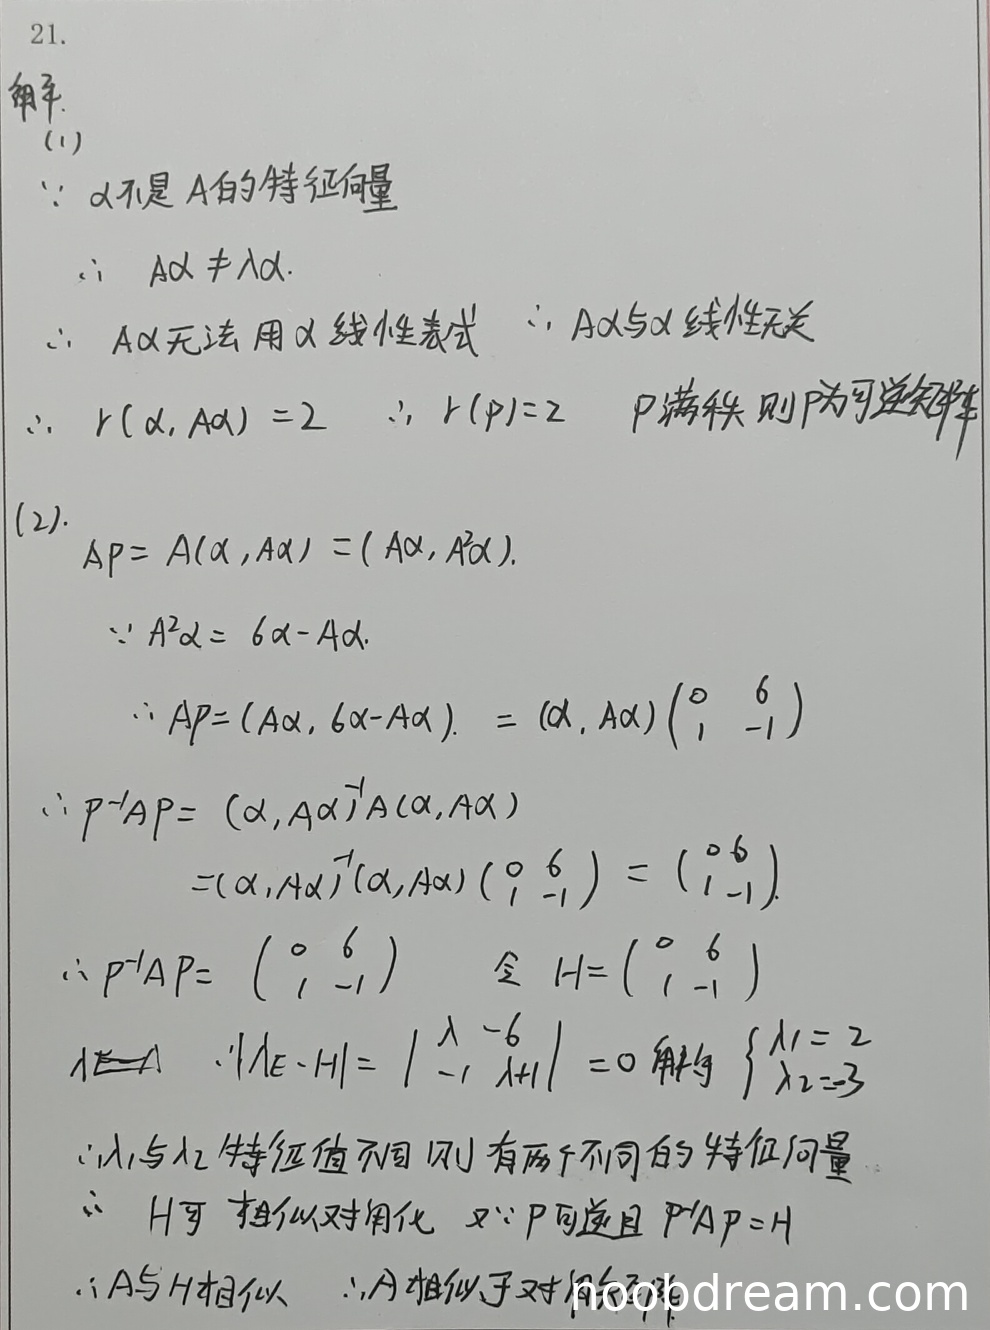 21.
解.
(1)
∵ α不是A的特征向量
∴ Aα ≠ λα.
∴ Aα无法用α线性表式 ∴ Aα与α线性无关
∴ r(α, Aα) = 2 ∴ r(P)=2 P满秩 则P为可逆矩阵
(2).
AP = A(α, Aα) = (Aα, A²α).
∵ A²α = 6α - Aα.
∴ AP = (Aα, 6α-Aα). = (α, Aα) (0 6; 1 -1)
∴ P⁻¹AP = (α, Aα)⁻¹A(α, Aα)
= (α, Aα)⁻¹(α, Aα) (0 6; 1 -1) = (0 6; 1 -1).
∴ P⁻¹AP = (0 6; 1 -1) 令 H = (0 6; 1 -1)
∴ |λE - H| = |λ -6; -1 λ+1| = 0 解得 {λ1 = 2; λ2 = -3
∴ λ1与λ2特征值不同 则有两个不同的特征向量
∴ H可相似对角化 又∵P可逆且P⁻¹AP=H
∴ A与H相似 ∴ A相似于对角矩阵
noobdream.com